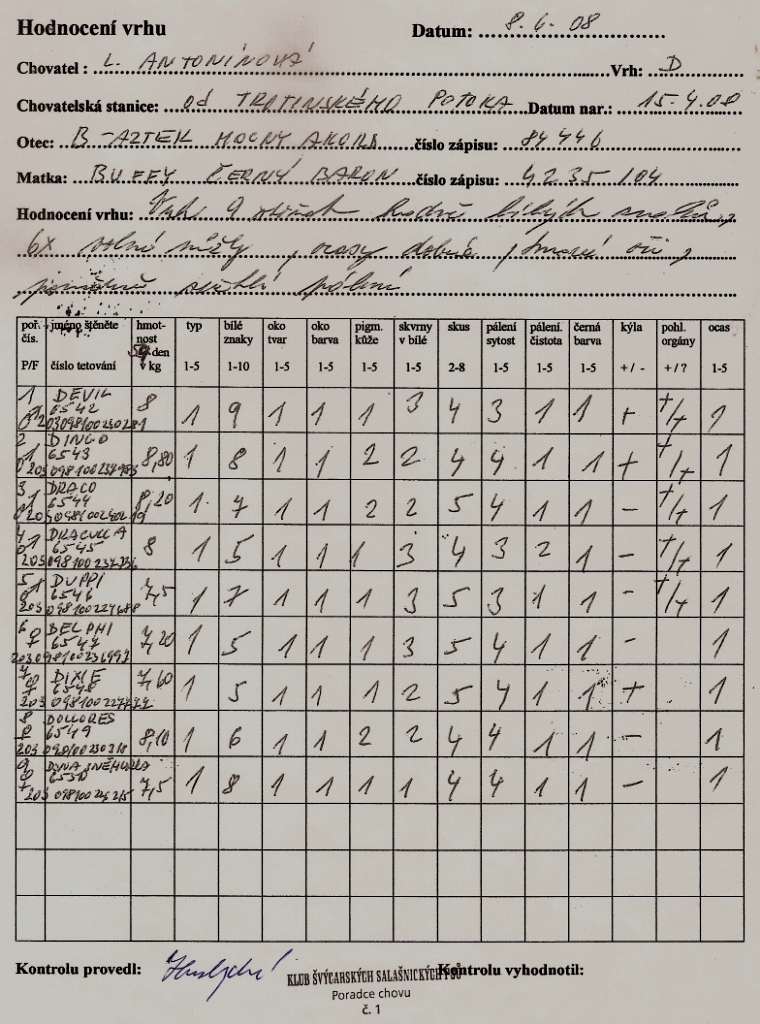 Hodnocení vrhu Datum: 8.6.08
Chovatel: L. ANTONÍNOVÁ Vrh: D
Chovatelská stanice: od TROTINSKÉHO POTOKA Datum nar.: 15.4.08
Otec: B-AZTEK MOCNY AKORD číslo zápisu: 84446
Matka: BUFFY ČERNÝ BARON číslo zápisu: 4235/104
Hodnocení vrhu: 9 bílých
6x , ocasy dobré , tmavé oči,
pálení
poř. čís. P/F jméno štěněte číslo tetování hmotnost den v kg typ 1-5 bílé znaky 1-10 oko tvar 1-5 oko barva 1-5 pigm. kůže 1-5 skvrny v bílé 1-5 skus 2-8 pálení sytost 1-5 pálení. čistota 1-5 černá barva 1-5 kýla +/- pohl. orgány +/? ocas 1-5
1 DEVIL
6542 8 1 9 1 1 1 3 4 3 1 1 + +/+ 1
2 DINGO
6543 8,80 1 8 1 1 2 2 4 4 1 1 + +/+ 1
3 DRACO
6544 8,20 1 7 1 1 2 2 5 4 1 1 - +/+ 1
4 DRACULA
6545 8 1 5 1 1 1 3 4 3 2 1 - +/+ 1
5 DUPPI
6546 7,5 1 7 1 1 1 3 5 3 1 1 - +/+ 1
6 DELPHI
6547 7,20 1 5 1 1 1 3 5 4 1 1 - 1
203098100236993
7 DIXIE
6548 7,60 1 5 1 1 1 2 5 4 1 1 + 1
8 DOLLORES
6549 8,10 1 6 1 1 2 2 4 4 1 1 - 1
9 DYNA SNĚHURKA
6550 7,5 1 8 1 1 1 1 4 4 1 1 - 1
Kontrolu provedl: KLUB ŠVÝCARSKÝCH SALAŠNICKÝCH PSŮ Kontrolu vyhodnotil:
Poradce chovu
č. 1